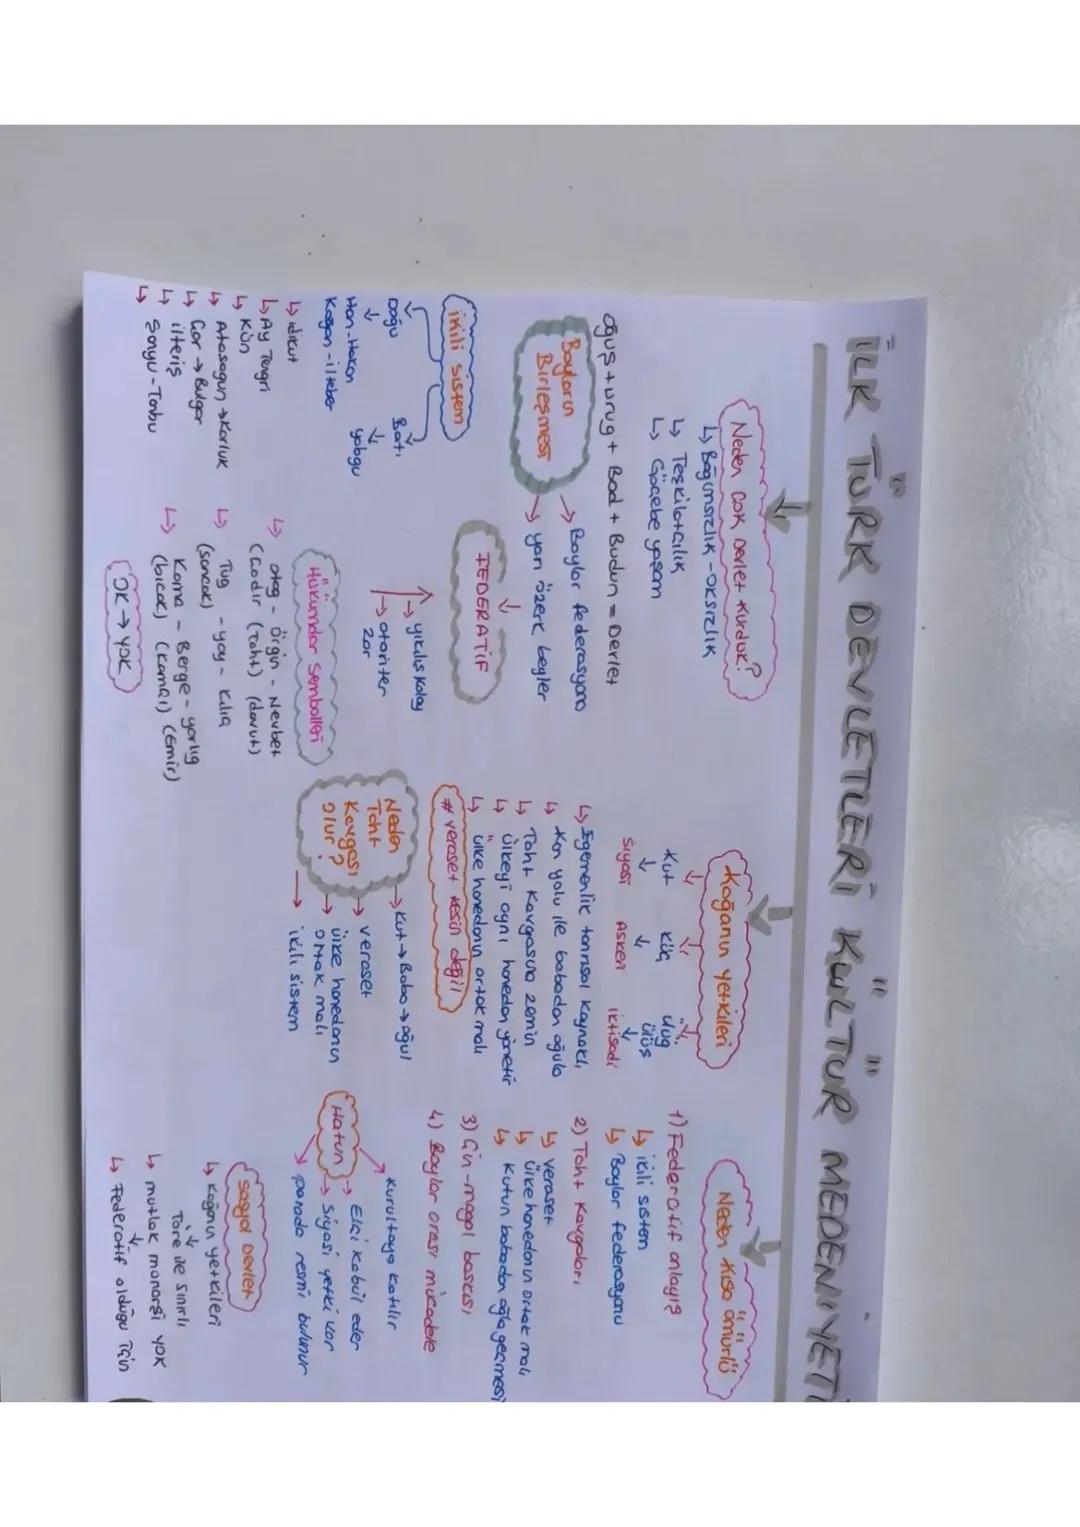 İLK TÜRK DEVLETLERİ KÜLTÜR MEDENİYETİ
Neden çok Devlet kurduk?
↳ Bağımsızlık - oksızlık
↳ Teşkilatçılık
↳ Göçebe yaşam
oğuş + urug + Bod + Budun = Devlet
Boyların Birleşmesi
→ Boylar federasyonu
→ yarı özerk beyler
FEDERATİF
→ yıkılış kolay
→ otoriter zor
ikili sistem
Doğu Batı
Han - Hakan yabgu
Kagan - ilteber
↳ idikut
↳ Ay Tengri
↳ Kün
↳ Atasagun → Karluk
↳ Çar → Bulgar
↳ ilteriş
↳ Şanyu - Tanhu
Hükümdar Sembolleri
↳ otag - örgin - Nevbet
(Çadır (Taht) (davut)
↳ Tug - yay - Kılıç
(sancak)
↳ Kama - Berge - yarlıg
(bıçak) (kamçı) (Emir)
OK → YOK
Kağanın yetkileri
Kut Küç ülüg
ülüş
Siyasi Askeri iktisadi
↳ Egemenlik tanrısal kaynaklı
↳ Kan yolu ile babadan oğula
↳ Taht Kavgasına zemin
↳ ülkeyi aynı hanedan yönetir
↳ ülke hanedanın ortak malı
# veraset kesin değil
Neden Taht Kavgası olur?
→ Kut → Baba → oğul
→ veraset
→ ülke hanedanın ortak malı
→ ikili sistem
Neden kısa ömürlü
1) Federatif anlayış
↳ ikili sistem
↳ Boylar federasyonu
2) Taht Kavgaları
↳ veraset
↳ ülke hanedanın ortak malı
↳ Kutun babadan oğla geçmesi
3) Çin - mogol baskısı
4) Boylar arası mücadele
Hatun
→ Kurultaya katılır
→ Elçi kabul eder
→ Siyasi yetki var
→ parada resmi bulunur
sosyal Devlet
↳ kağanın yetkileri
Töre ile sınırlı
↳ mutlak monarşi yok
↳ Federatif olduğu için